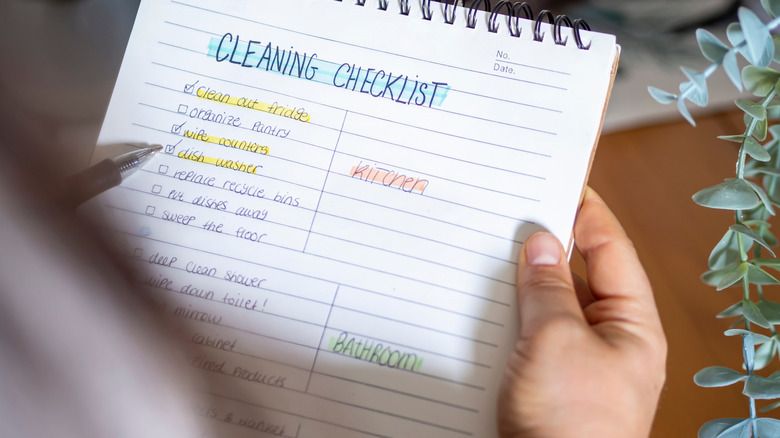 No.
Date.
CLEANING CHECKLIST
clean out fridge
organize pantry
wipe counters
dish washer
replace recycle bins
put dishes away
sweep the floor
Kitchen
deep clean shower
wipe down toilet!
mirror
cabinet
products
BATHROOM